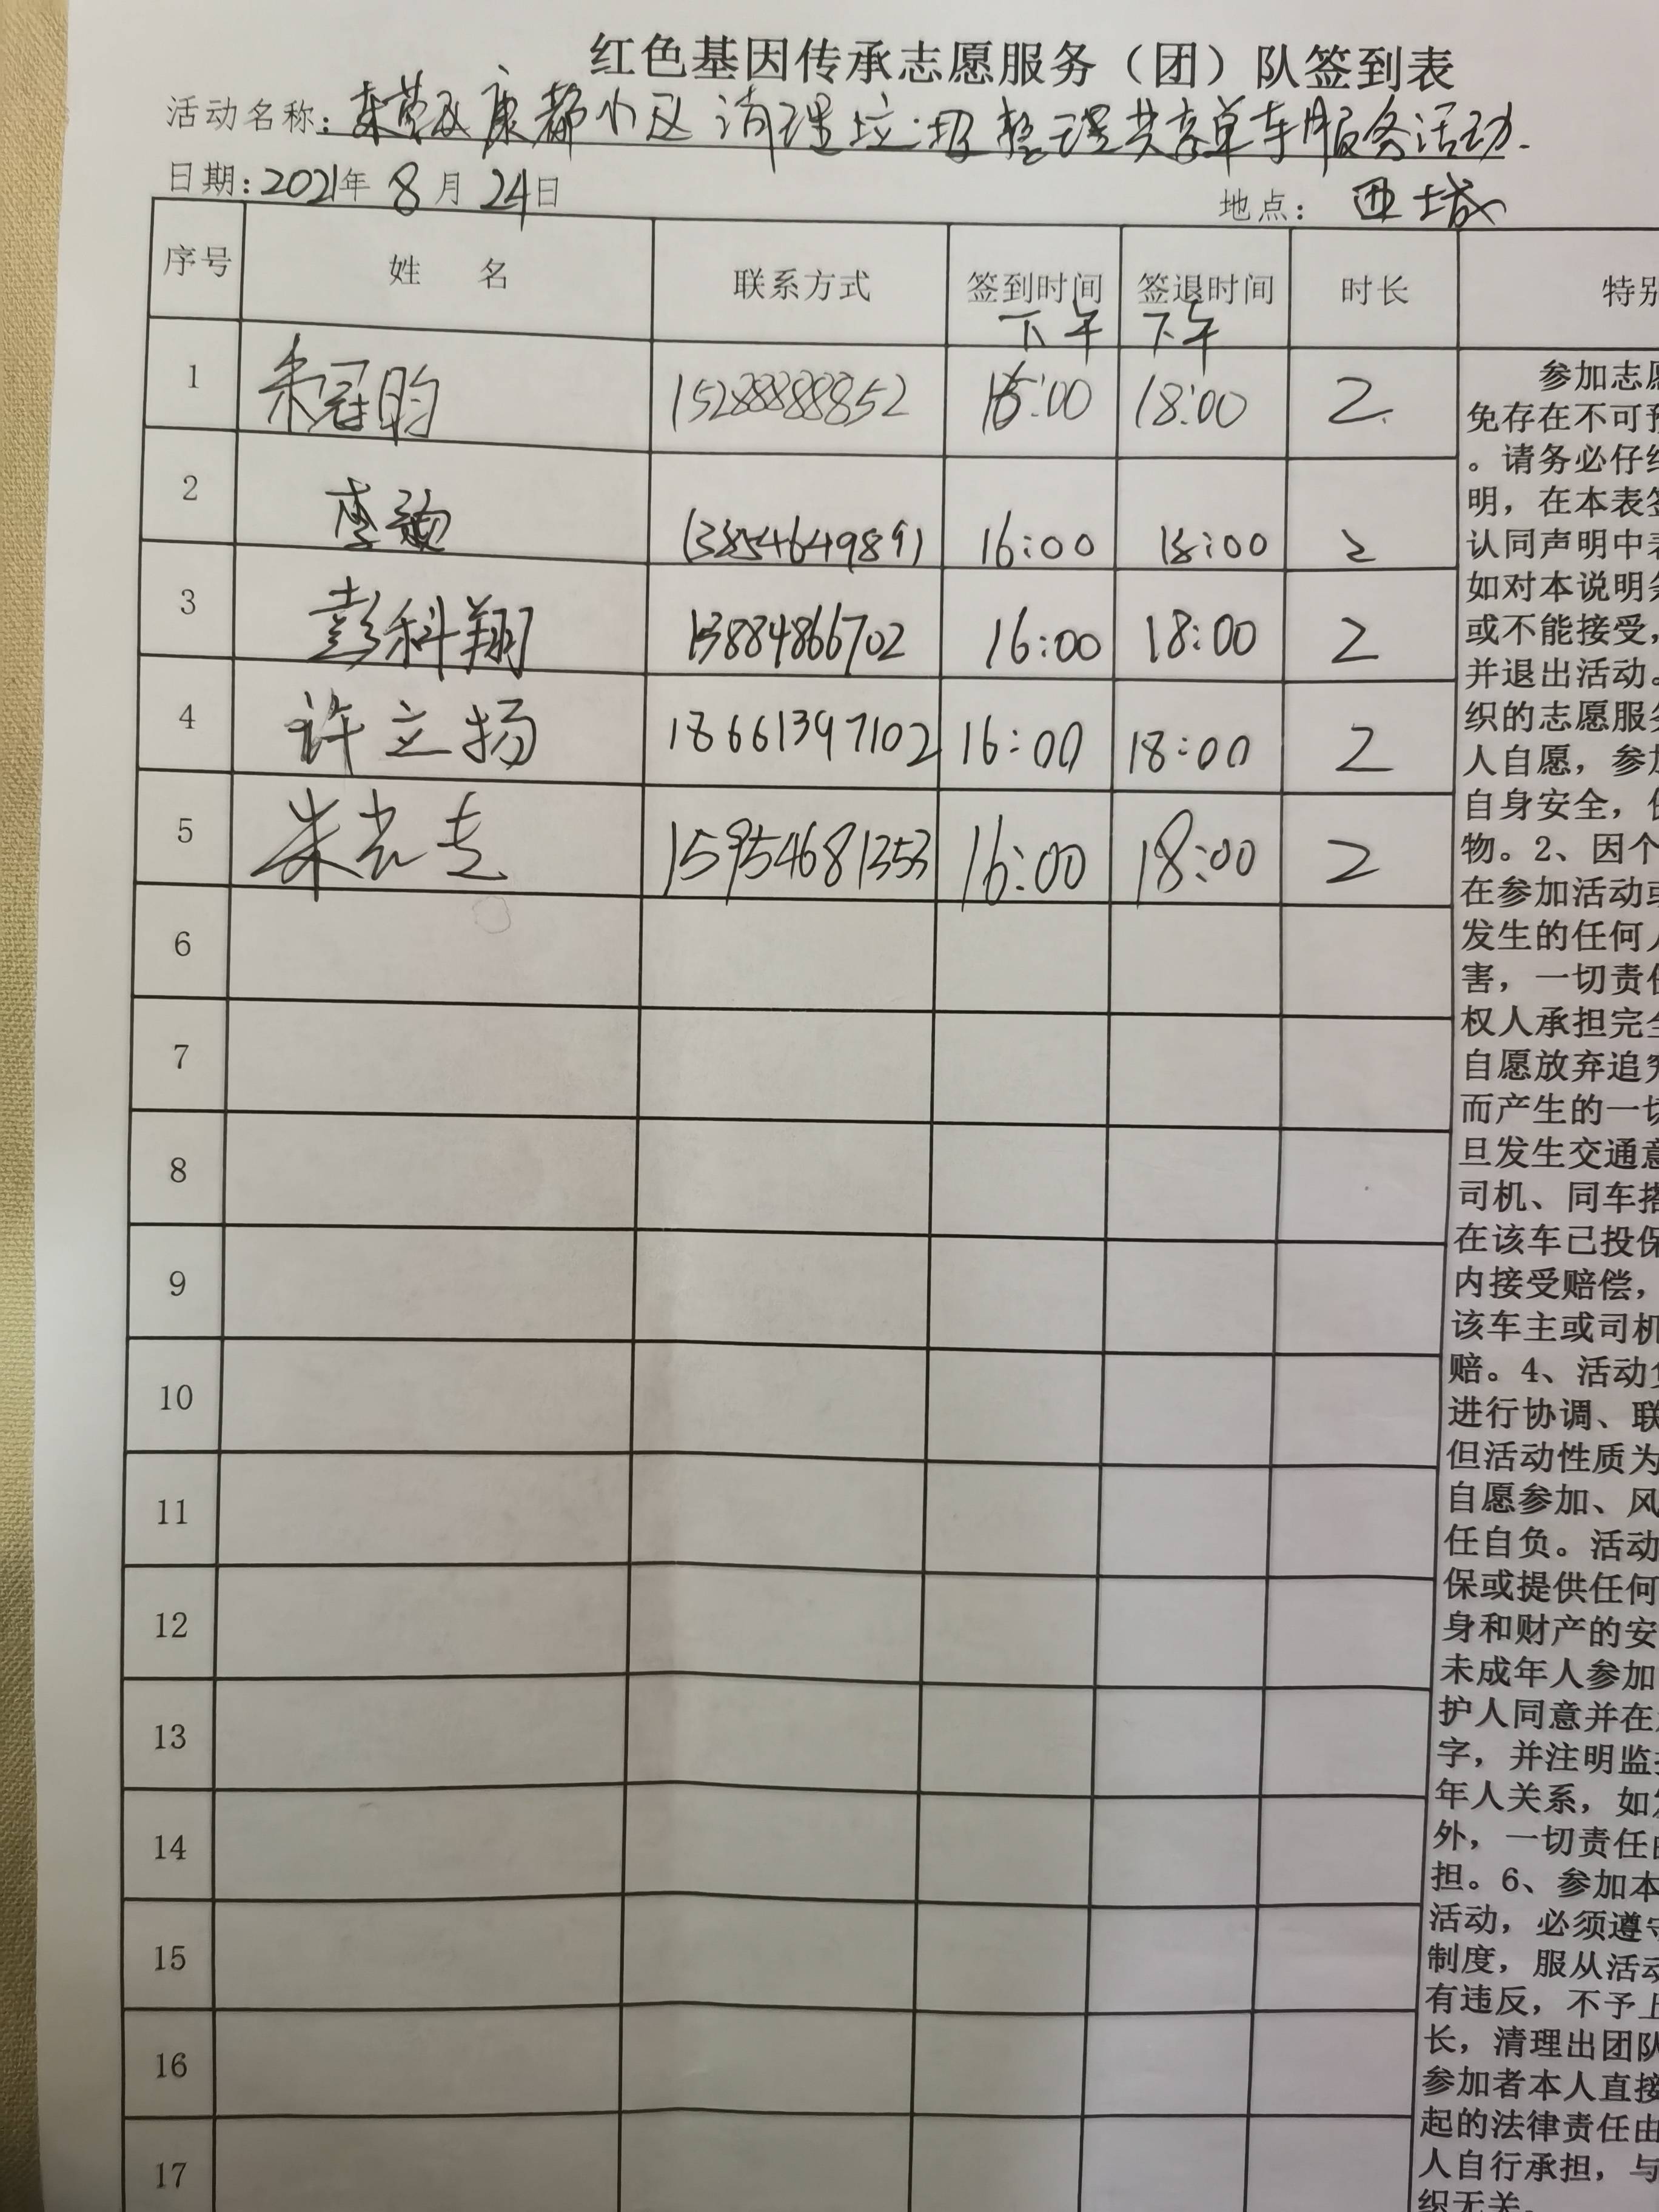 红色基因传承志愿服务（团）队签到表
活动名称：东营区康都小区清理垃圾整理共享单车服务活动.
日期：2021年 8 月 24日 地点： 西城
序号 姓 名 联系方式 签到时间 签退时间 时长 特别
下午 下午
1 朱冠昀 15288888852 16:00 18:00 2
2 李 13854649891 16:00 18:00 2
3 彭科翔 13884866702 16:00 18:00 2
4 许立扬 18661397102 16:00 18:00 2
5 朱 15954681353 16:00 18:00 2
6
7
8
9
10
11
12
13
14
15
16
17
参加志愿
免存在不可预
。请务必仔细
明，在本表签
认同声明中表
如对本说明条
或不能接受，
并退出活动。
织的志愿服务
人自愿，参加
自身安全，保
物。2、因个
在参加活动或
发生的任何人
害，一切责任
权人承担完全
自愿放弃追究
而产生的一切
旦发生交通意
司机、同车搭
在该车已投保
内接受赔偿，
该车主或司机
赔。4、活动负
进行协调、联
但活动性质为
自愿参加、风
任自负。活动
保或提供任何
身和财产的安
未成年人参加
护人同意并在
字，并注明监护
年人关系，如发
外，一切责任由
担。6、参加本
活动，必须遵守
制度，服从活动
有违反，不予上
长，清理出团队
参加者本人直接
起的法律责任由
人自行承担，与
织无关。